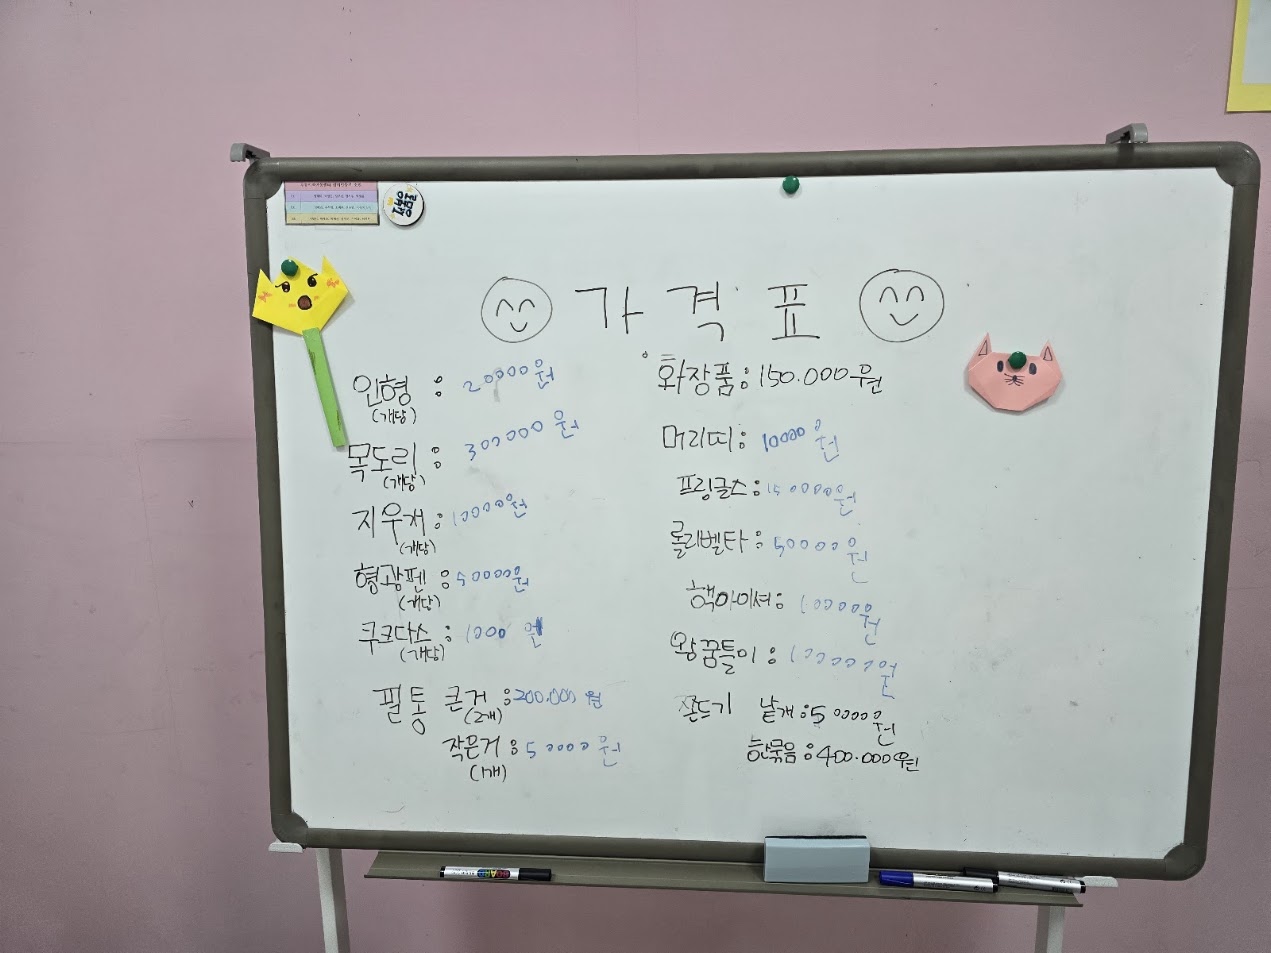 가격표
인형 : 20000원
(개당)
목도리 : 300000원
(개당)
지우개 : 10000원
(개당)
형광펜 : 50000원
(개당)
쿠크다스 : 1000 원
(개당)
필통 큰거 : 200.000 원
(2개)
작은거 : 50000원
(1개)
화장품 : 150.000원
머리띠 : 10000원
프링글스 :
롤리벨타 : 50000원
핵아이셔 : 10000원
왕꿈틀이 : 100000원
쫀드기 낱개 : 50000원
한묶음 : 400.000원